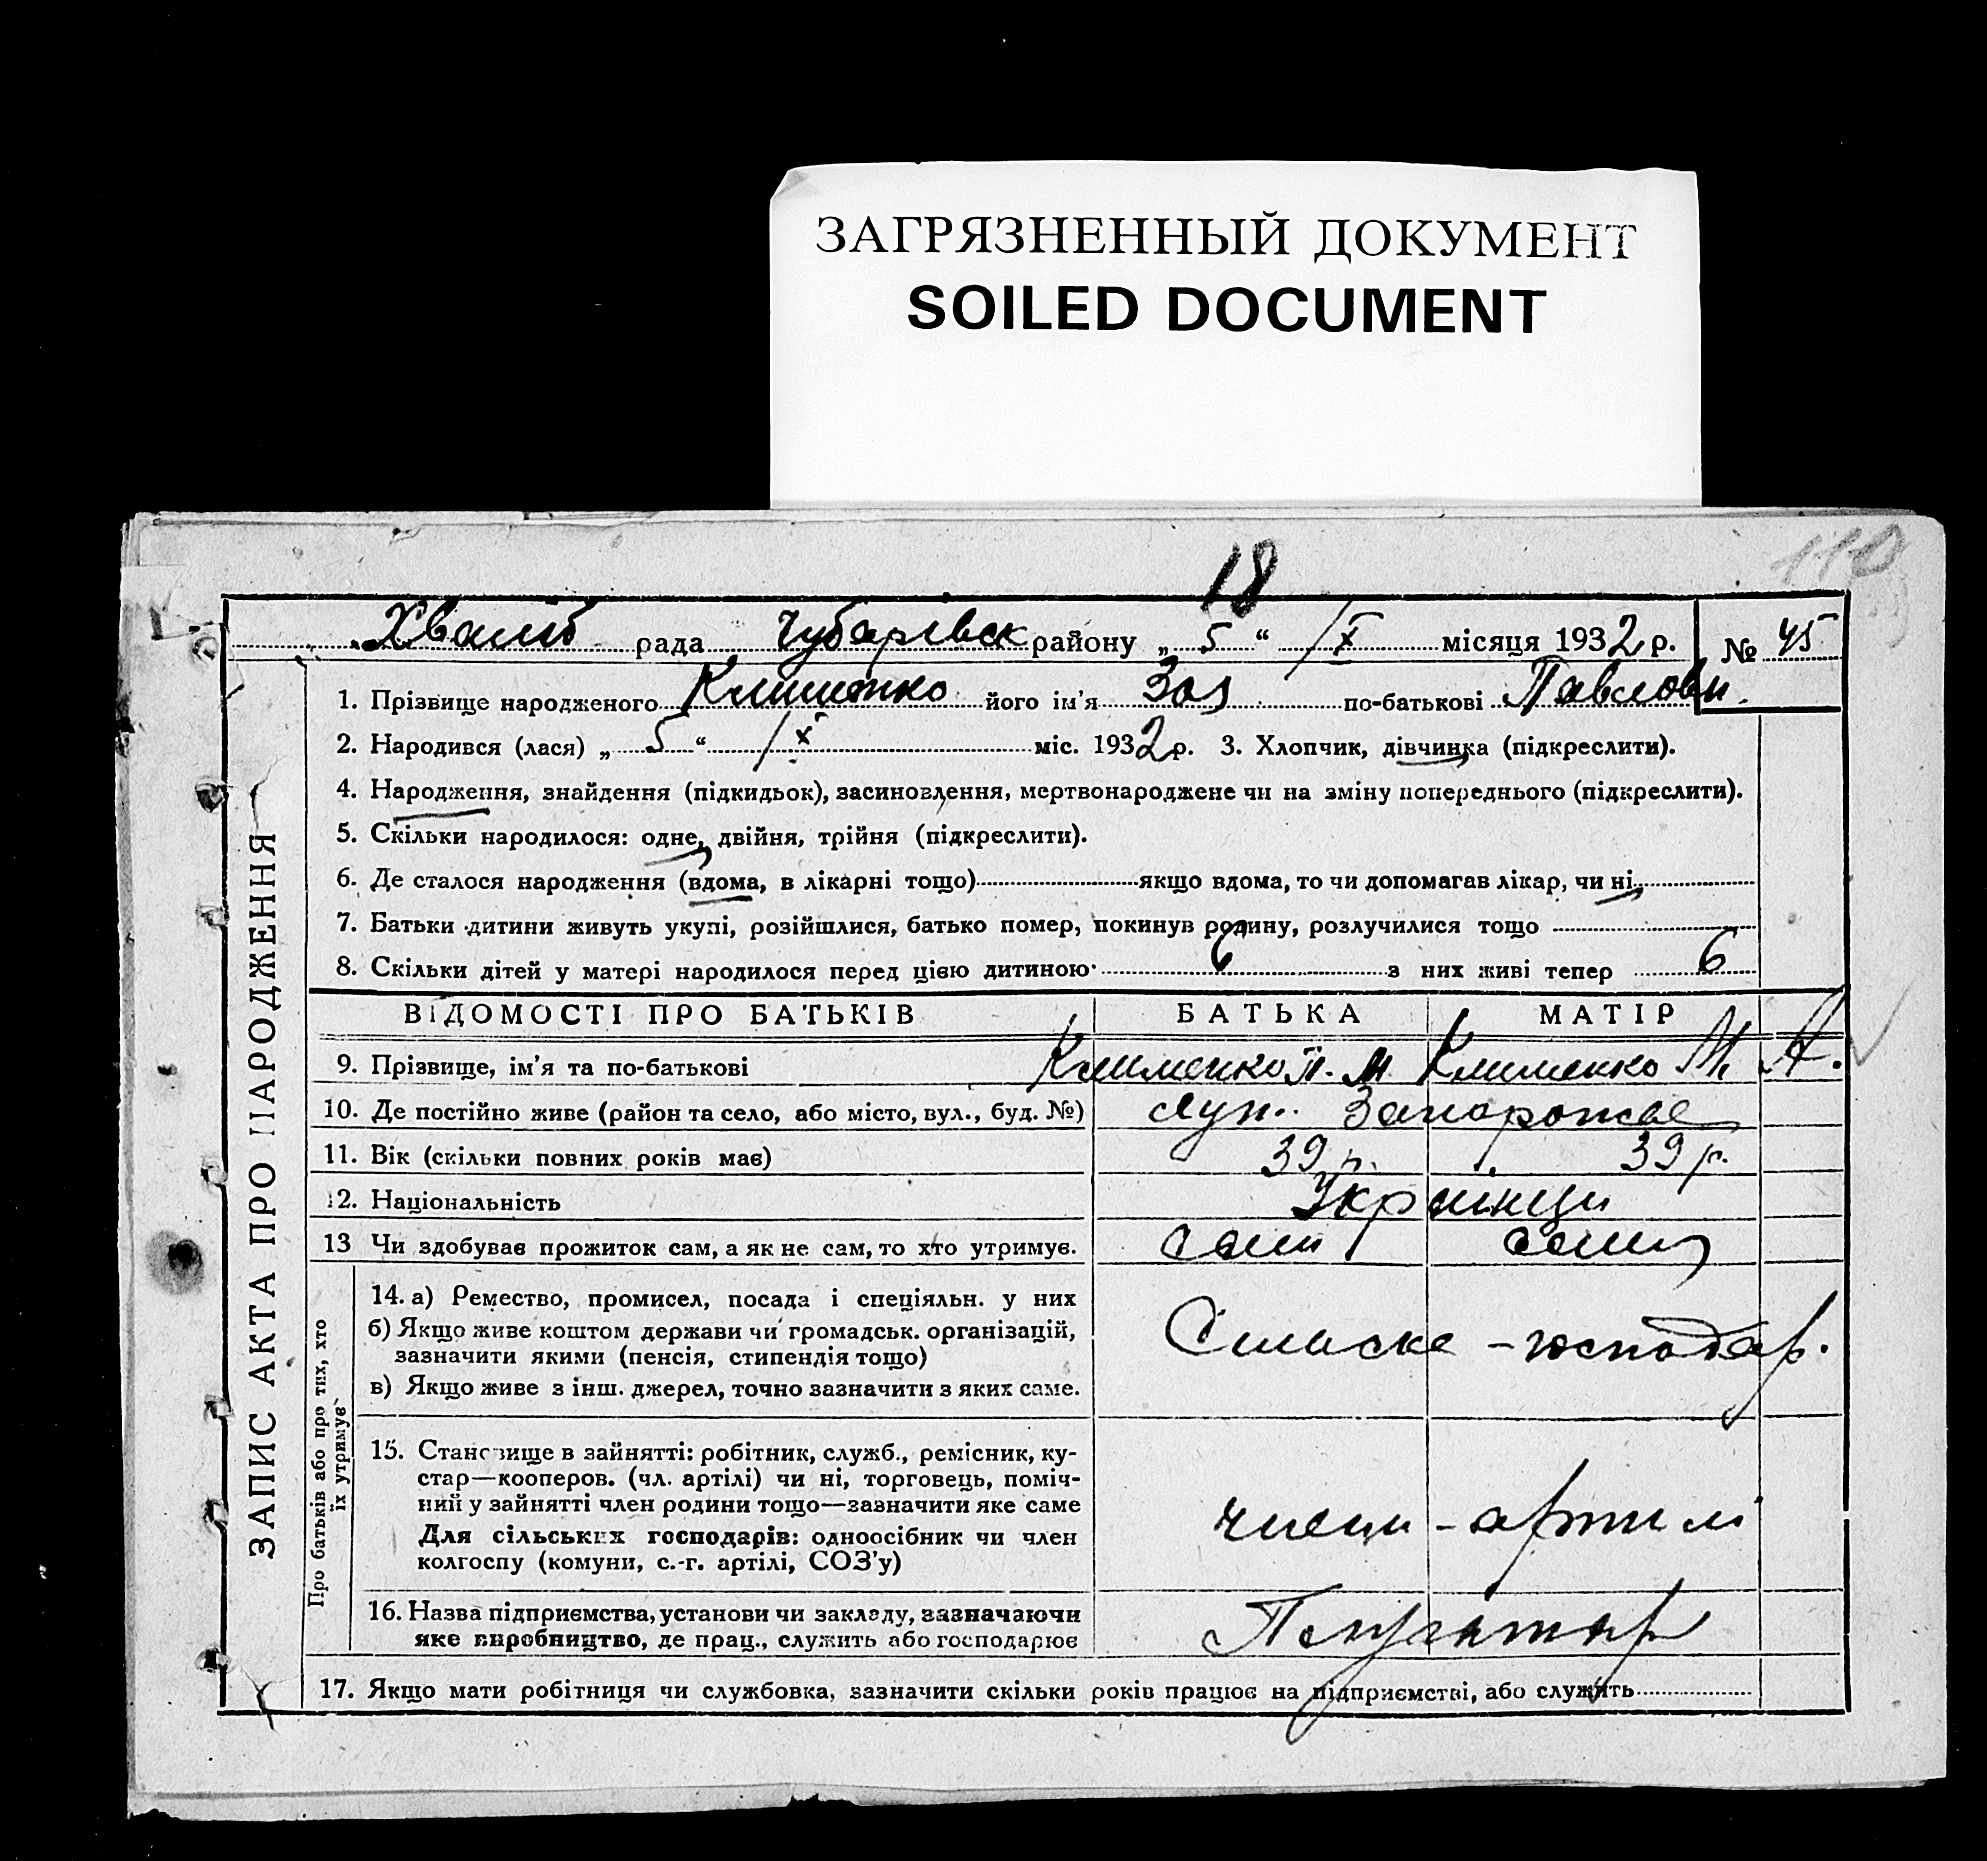 ЗАГРЯЗНЕННЫЙ ДОКУМЕНТ
SOILED DOCUMENT
18
110
рада Чубарівск району „ 5 “ /X місяця 1932 р. № 45
ЗАПИС АКТА ПРО НАРОДЖЕННЯ
1. Прізвище народженого Клименко його ім'я Зоя по-батькові Павловн.
2. Народився (лася) „ 5 “ /X міс. 1932 р. 3. Хлопчик, дівчинка (підкреслити).
4. Народження, знайдення (підкидьок), засиновлення, мертвонароджене чи на зміну попереднього (підкреслити).
5. Скільки народилося: одне, двійня, трійня (підкреслити).
6. Де сталося народження (вдома, в лікарні тощо) якщо вдома, то чи допомагав лікар, чи ні
7. Батьки дитини живуть укупі, розійшлися, батько помер, покинув родину, розлучилися тощо
8. Скільки дітей у матері народилося перед цією дитиною 6 з них живі тепер 6
ВІДОМОСТІ ПРО БАТЬКІВ БАТЬКА МАТІР
9. Прізвище, ім'я та по-батькові Клименко П. М. Клименко М. А.
10. Де постійно живе (район та село, або місто, вул., буд. №) Запорожье
11. Вік (скільки повних років має) 39 р. 39 р.
12. Національність Українци
13 Чи здобуває прожиток сам, а як не сам, то хто утримує. сами сами
Про батьків або про тих, хто їх утримує
14. а) Ремество, промисел, посада і спеціяльн. у них
б) Якщо живе коштом держави чи громадськ. організацій,
зазначити якими (пенсія, стипендія тощо)
в) Якщо живе з інш. джерел, точно зазначити з яких саме.
Сильске - господар.
15. Становище в зайнятті: робітник, служб., ремісник, ку-
стар—кооперов. (чл. артілі) чи ні, торговець, поміч-
ний у зайнятті член родини тощо—зазначити яке саме
Для сільських господарів: одноосібник чи член
колгоспу (комуни, с.-г. артілі, СОЗ'у)
члени - артилі
16. Назва підприємства, установи чи закладу, зазначаючи
яке виробництво, де прац., служить або господарює
17. Якщо мати робітниця чи службовка, зазначити скільки років працює на підприємстві, або служить